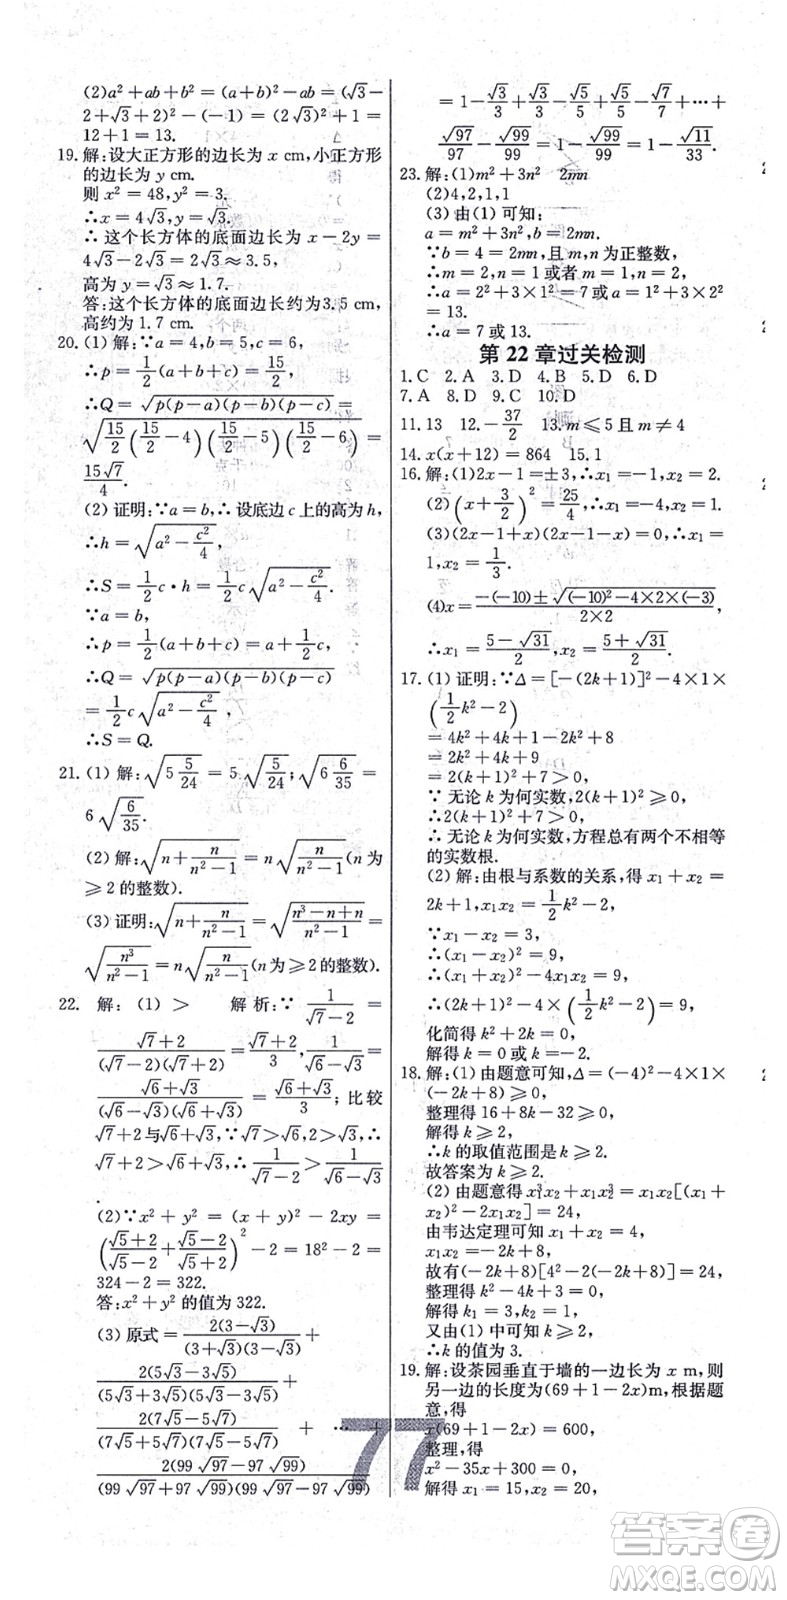 (2)a²+ab+b²=(a+b)²-ab=(√3-
2+√3+2)²-(-1)=(2√3)²+1=
12+1=13.
19. 解:设大正方形的边长为 x cm,小正方形
的边长为 y cm.
则 x²=48,y²=3.
∴x=4√3,y=√3.
∴这个长方体的底面边长为 x-2y=
4√3-2√3=2√3≈3.5,
高为 y=√3≈1.7.
答:这个长方体的底面边长约为3.5 cm,
高约为 1.7 cm.
20. (1) 解:∵a=4,b=5,c=6,
∴p=1/2(a+b+c)=15/2,
∴Q=√(p(p-a)(p-b)(p-c))=
√(15/2(15/2-4)(15/2-5)(15/2-6))=
15√7/4.
(2) 证明:∵a=b,∴设底边 c 上的高为 h,
∴h=√(a²-c²/4),
∴S=1/2c·h=1/2c√(a²-c²/4).
∵a=b,
∴p=1/2(a+b+c)=a+1/2c,
∴Q=√(p(p-a)(p-b)(p-c))
=1/2c√(a²-c²/4),
∴S=Q.
21. (1) 解:√(5 5/24)=5√(5/24);√(6 6/35)=
6√(6/35).
(2) 解:√(n+n/(n²-1))=n√(n/(n²-1))(n 为
≥2 的整数).
(3) 证明:√(n+n/(n²-1))=√((n³-n+n)/(n²-1))=
√(n³/(n²-1))=n√(n/(n²-1))(n 为≥2 的整数).
22. 解:(1) > 解析:∵1/(√7-2)=
(√7+2)/((√7-2)(√7+2))=(√7+2)/3,1/(√6-√3)=
(√6+√3)/((√6-√3)(√6+√3))=(√6+√3)/3;比较
√7+2与√6+√3,∵√7>√6,2>√3,∴
√7+2>√6+√3,∴1/(√7-2)>1/(√6-√3)
.
(2)∵x²+y²=(x+y)²-2xy=
((√5+2)/(√5-2)+(√5-2)/(√5+2))²-2=18²-2=
324-2=322.
答:x²+y² 的值为 322.
(3) 原式=2(3-√3)/((3+√3)(3-√3))+
2(5√3-3√5)/((5√3+3√5)(5√3-3√5))+
2(7√5-5√7)/((7√5+5√7)(7√5-5√7))+…+
2(99√97-97√99)/((99√97+97√99)(99√97-97√99))
=1-√3/3+√3/3-√5/5+√5/5-√7/7+…+
√97/97-√99/99=1-√99/99=1-√11/33.
23. 解:(1)m²+3n² 2mn
(2)4,2,1,1
(3) 由(1) 可知:
a=m²+3n²,b=2mn.
∵b=4=2mn,且m,n为正整数,
∴m=2,n=1或者m=1,n=2.
∴a=2²+3×1²=7或a=1²+3×2²
=13.
∴a=7或13.
第 22 章过关检测
1. C 2. A 3. D 4. B 5. D 6. D
7. A 8. D 9. C 10. D
11. 13 12. -37/2 13. m≤5且m≠4
14. x(x+12)=864 15. 1
16. 解:(1)2x-1=±3,∴x₁=-1,x₂=2.
(2)(x+3/2)²=25/4,∴x₁=-4,x₂=1.
(3)(2x-1+x)(2x-1-x)=0,∴x₁=
1,x₂=1/3.
(4)x=(-(-10)±√((-10)²-4×2×(-3)))/(2×2)
∴x₁=(5-√31)/2,x₂=(5+√31)/2.
17. (1) 证明:∵Δ=[-(2k+1)]²-4×1×
(1/2k²-2)
=4k²+4k+1-2k²+8
=2k²+4k+9
=2(k+1)²+7>0,
∵无论k为何实数,2(k+1)²≥0,
∴2(k+1)²+7>0,
∴无论k为何实数,方程总有两个不相等
的实数根.
(2) 解:由根与系数的关系,得 x₁+x₂=
2k+1,x₁x₂=1/2k²-2,
∵x₁-x₂=3,
∴(x₁-x₂)²=9,
∴(x₁+x₂)²-4x₁x₂=9,
∴(2k+1)²-4×(1/2k²-2)=9,
化简得 k²+2k=0,
解得 k=0或k=-2.
18. 解:(1) 由题意可知,Δ=(-4)²-4×1×
(-2k+8)≥0,
整理得 16+8k-32≥0,
解得 k≥2,
∴k 的取值范围是 k≥2.
故答案为 k≥2.
(2) 由题意得 x₁³x₂+x₁x₂³=x₁x₂[(x₁+
x₂)²-2x₁x₂]=24,
由韦达定理可知 x₁+x₂=4,
x₁x₂=-2k+8,
故有(-2k+8)[4²-2(-2k+8)]=24,
整理得 k²-4k+3=0,
解得 k₁=3,k₂=1,
又由(1) 中可知 k≥2,
∴k 的值为 3.
19. 解:设茶园垂直于墙的一边长为 x m,则
另一边的长度为(69+1-2x)m,根据题
意,得
x(69+1-2x)=600,
整理,得
x²-35x+300=0,
解得 x₁=15,x₂=20,
77
答案圈
MXQE.COM